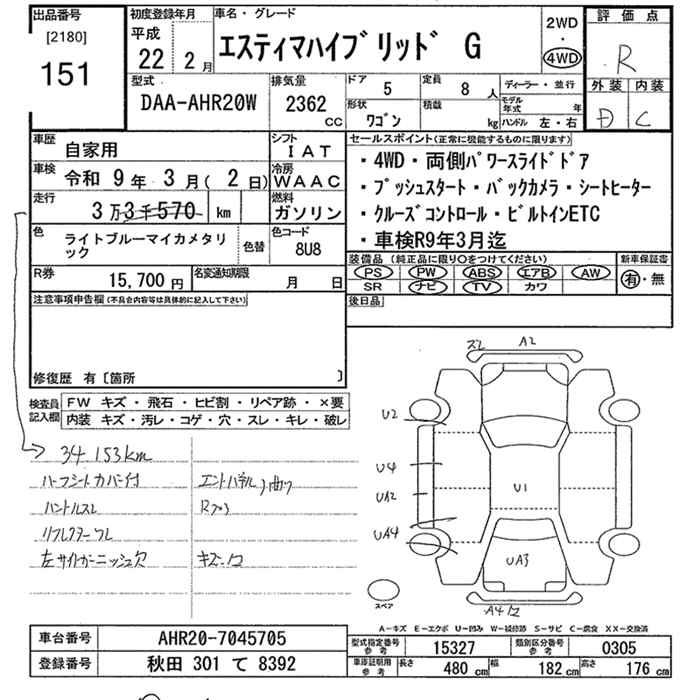 出品番号
[2180]
151
初度登録年月
平成
22 2月
車名・グレード
エスティマハイブリッド G
2WD
・
4WD
評価点
R
外装 内装
D C
型式
DAA-AHR20W
排気量
2362
CC
ドア 5
定員 8 人
形状 ワゴン
積載 kg
ディーラー・並行
モデル年式 年
ハンドル 左・右
車歴 自家用
シフト IAT
車検 令和 9年 3月( 2日)
冷房 WAAC
走行 3万3千570 km
燃料 ガソリン
色 ライトブルーマイカメタリック
色替
色コード 8U8
R券 15,700円
名変通知期限 月 日
セールスポイント(正常に機能するものに限ります)
・4WD・両側パワースライドドア
・プッシュスタート・バックカメラ・シートヒーター
・クルーズコントロール・ビルトインETC
・車検R9年3月迄
装備品 (純正品に限り○をつけてください)
PS PW ABS エアB AW
SR ナビ TV カワ
新車保証書
有・無
後日品
注意事項申告欄(不具合内容等は具体的に記入して下さい)
修復歴 有〔箇所 〕
検査員記入欄
FW キズ・飛石・ヒビ割・リペア跡・×要
内装 キズ・汚レ・コゲ・穴・スレ・キレ・破レ
34153km
ハーフシートカバー付
ハンドルスレ
リフレクターワレ
左サイドガーニッシュ欠
エンドパネル曲り
スレ A2
U2
U4
UA2
UA4
U1
UA3
スペア
A-キズ E-エクボ U-凹み W-補修跡 S-サビ C-腐食 XX-交換済
車台番号 AHR20-7045705
登録番号 秋田 301 て 8392
型式指定番号 参考 15327
類別区分番号 参考 0305
車庫証明用 参考 長さ 480 cm 幅 182 cm 高さ 176 cm